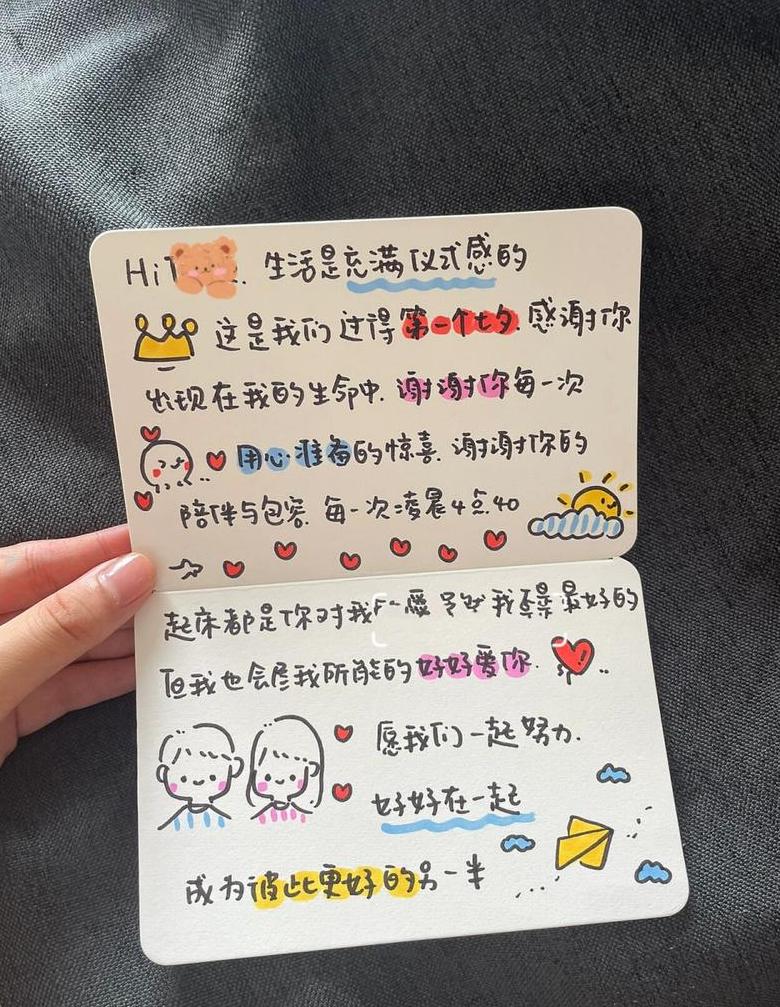 Hi 生活是充满仪式感的
这是我们过得第一个七夕.感谢你
出现在我的生命中.谢谢你每一次
用心准备的惊喜.谢谢你的
陪伴与包容.每一次凌晨4点40
起床都是你对我 爱 我 最好的
但我也会尽我所能的好好爱你.
愿我们一起努力.
好好在一起
成为彼此更好的另一半